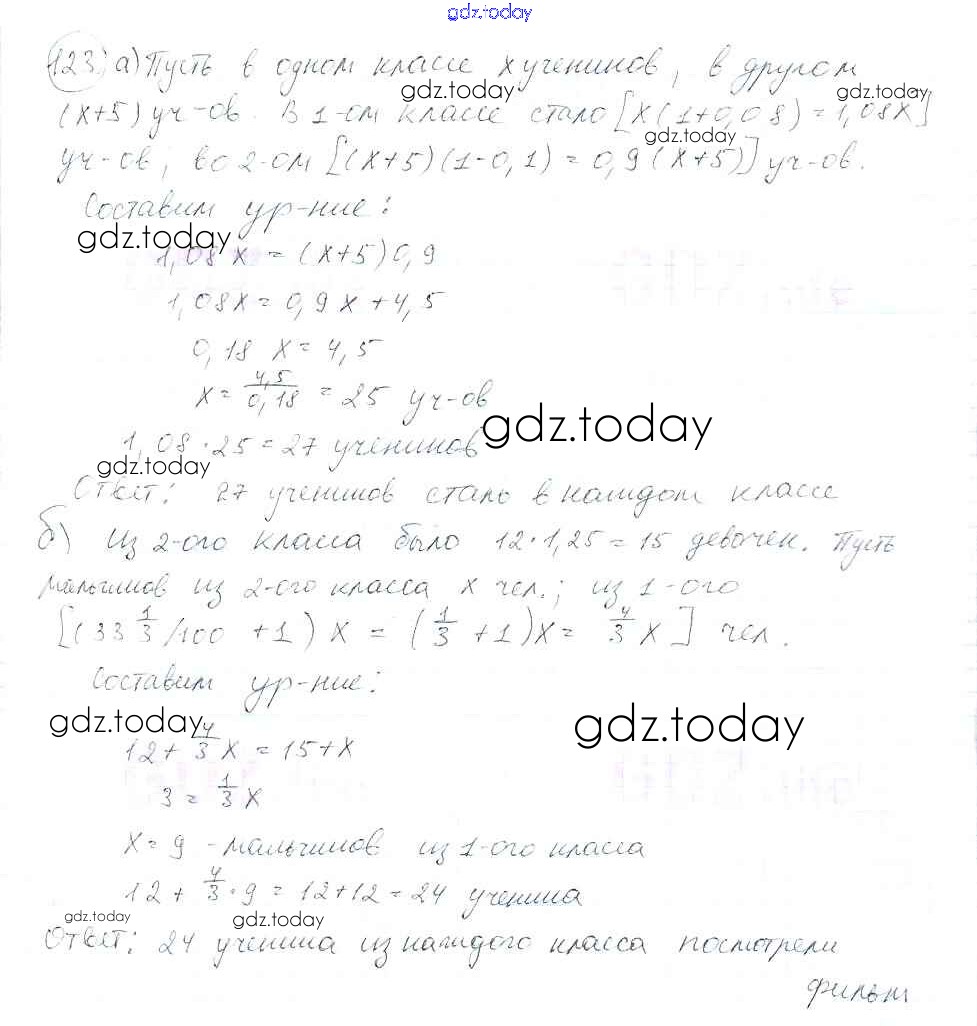 gdz.today
123. а) Пусть в одном классе x учеников, в другом
gdz.today gdz.today
(x+5) уч-ов. В 1-ом классе стало [x(1+0,08) = 1,08x]
gdz.today
уч-ов, во 2-ом [(x+5)(1-0,1) = 0,9(x+5)] уч-ов.
Составим ур-ние:
gdz.today
1,08x = (x+5)0,9
1,08x = 0,9x + 4,5
0,18 x = 4,5
x = 4,5/0,18 = 25 уч-ов
gdz.today
1,08 · 25 = 27 учеников
gdz.today
Ответ: 27 учеников стало в каждом классе
б) Из 2-ого класса было 12 · 1,25 = 15 девочек. Пусть
мальчиков из 2-ого класса x чел.; из 1-ого
[(33 1/3 /100 + 1) x = (1/3 + 1)x = 4/3 x] чел.
Составим ур-ние:
gdz.today gdz.today
12 + 4/3 x = 15 + x
3 = 1/3 x
x = 9 - мальчиков из 1-ого класса
12 + 4/3 · 9 = 12 + 12 = 24 ученика
gdz.today gdz.today
Ответ: 24 ученика из каждого класса посмотрели
фильм